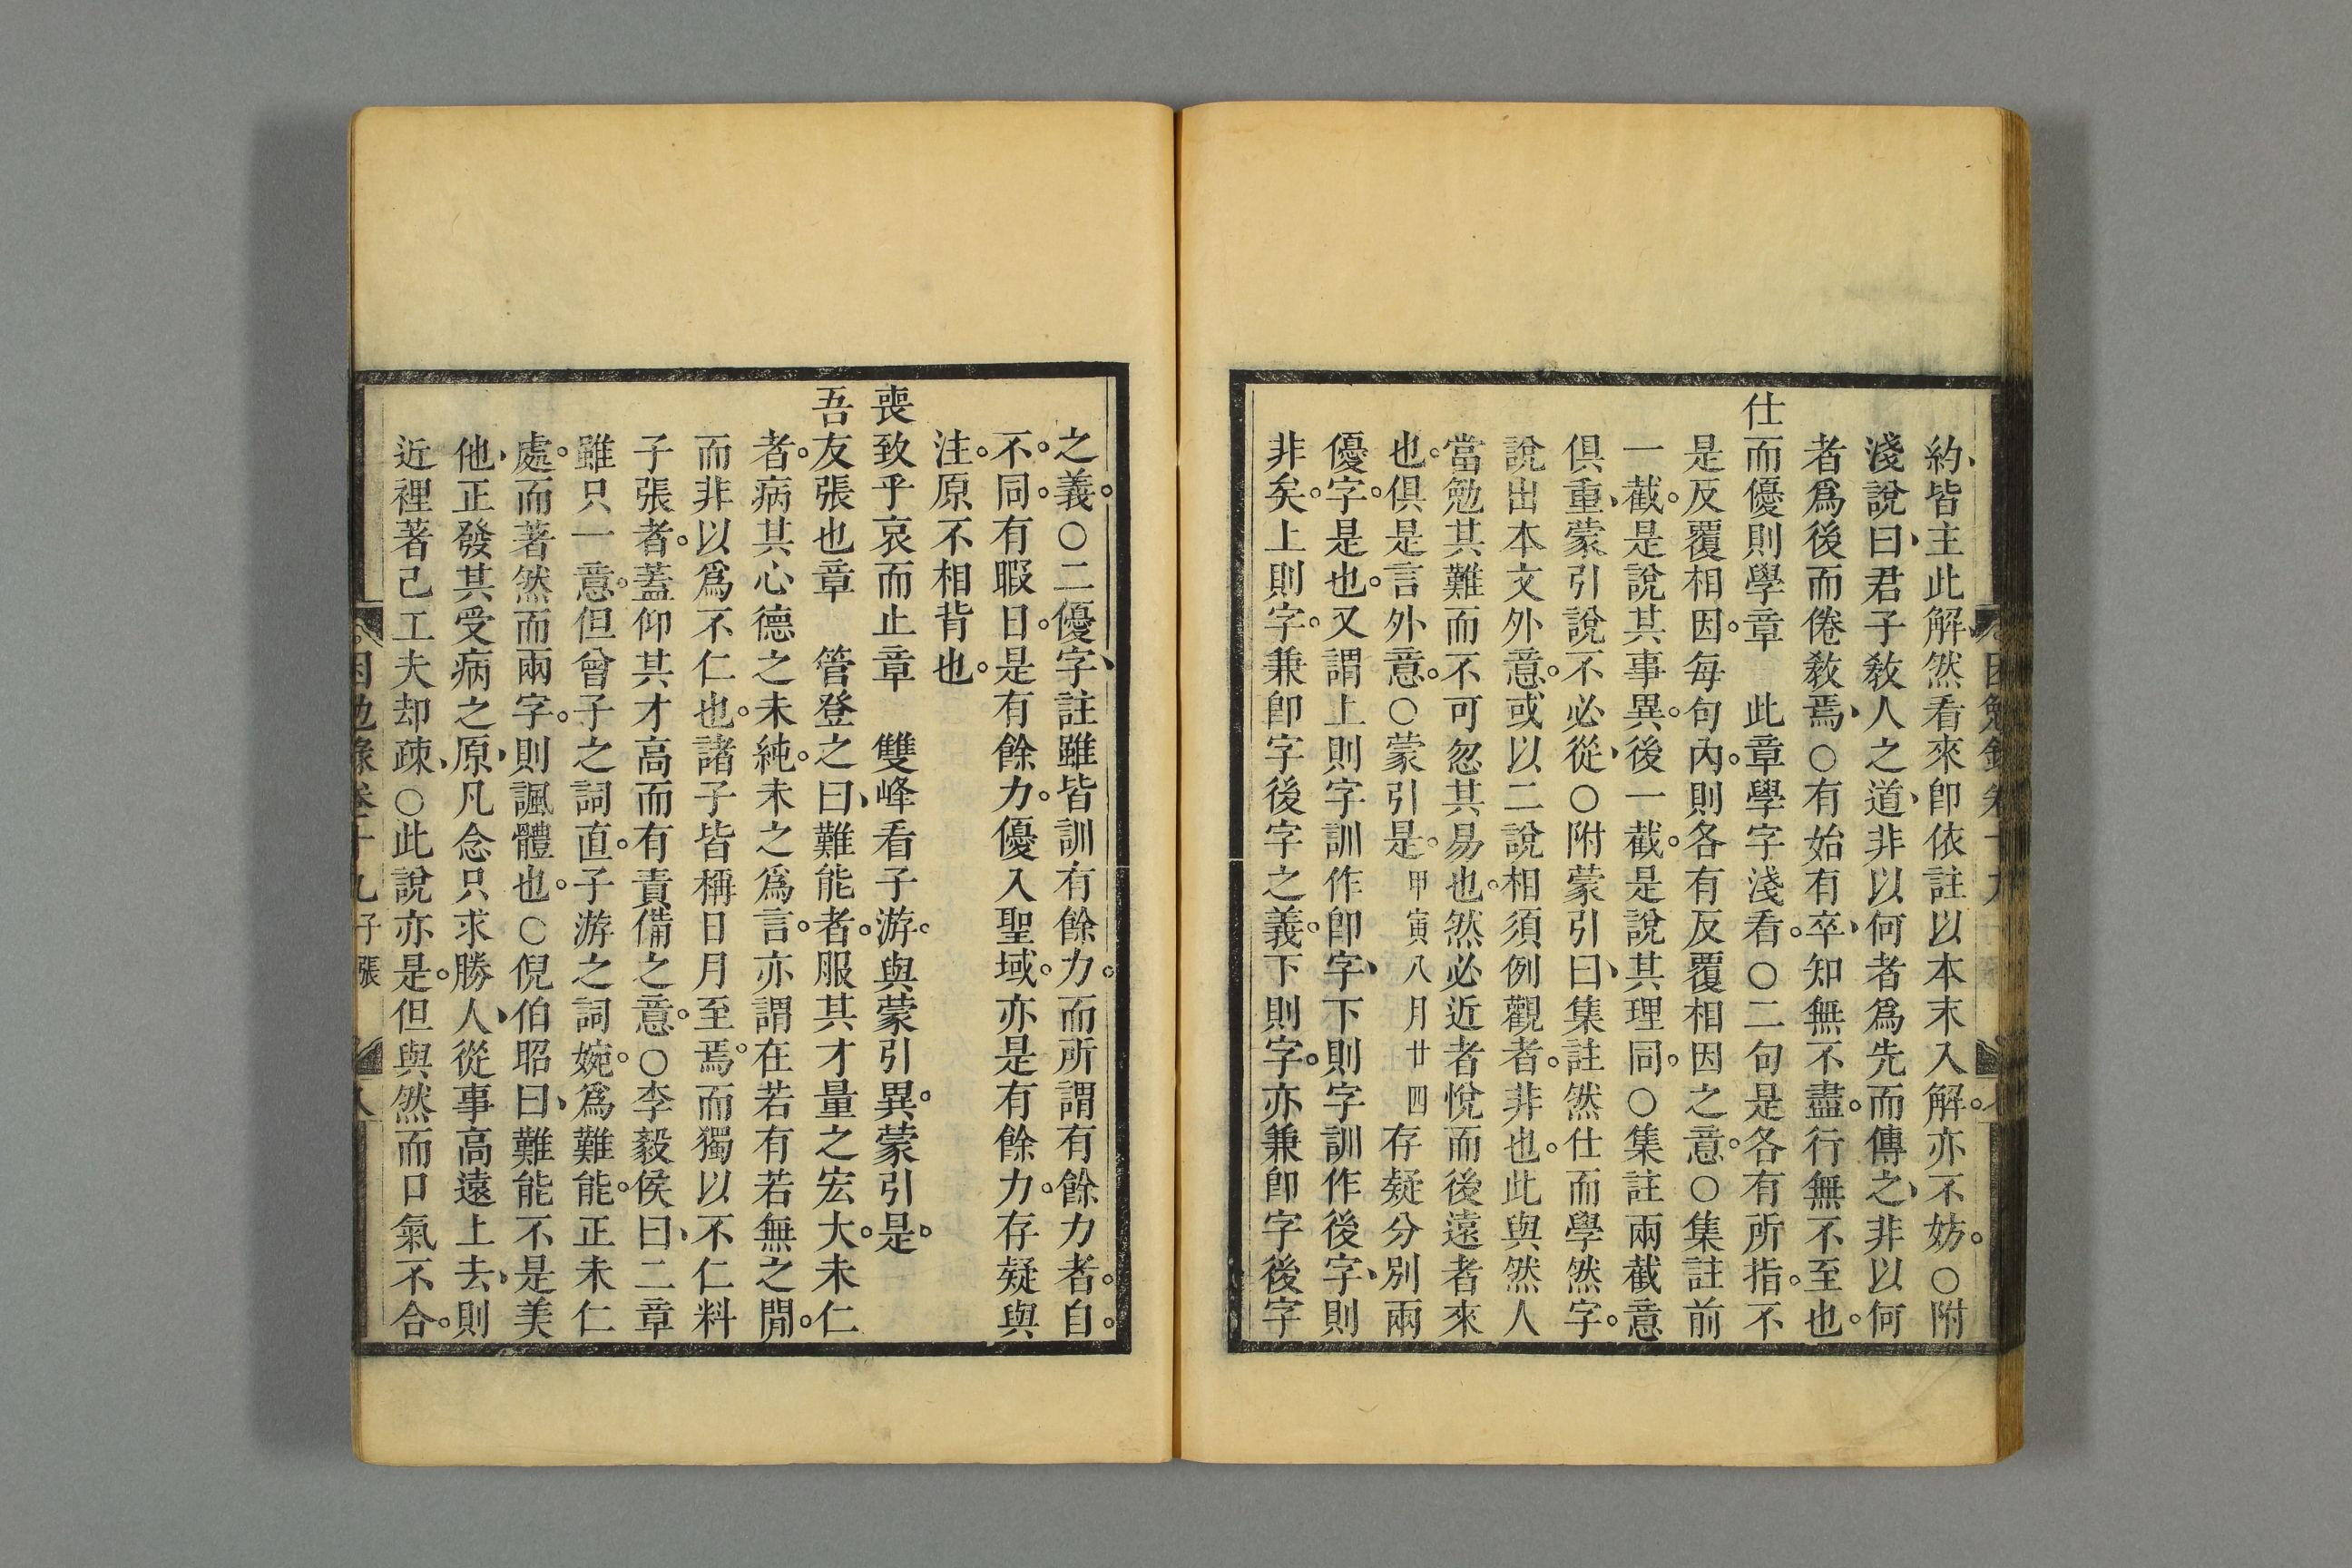 約皆主此解然看來卽依註以本末入解亦不妨○附
淺說曰君子敎人之道非以何者爲先而傳之非以何
者爲後而倦敎焉○有始有卒知無不盡行無不至也
仕而優則學章　此章學字淺看○二句是各有所指不
是反覆相因每句內則各有反覆相因之意○集註前
一截是說其事異後一截是說其理同○集註兩截意
俱重蒙引說不必從○附蒙引曰集註然仕而學然字
說出本文外意或以二說相須例觀者非也此與然人
當勉其難而不可忽其易也然必近者悅而後遠者來
也俱是言外意○蒙引是甲寅八月廿四存疑分別兩
優字是也又謂上則字訓作卽字下則字訓作後字則
非矣上則字兼卽字後字之義下則字亦兼卽字後字
之義○二優字註雖皆訓有餘力而所謂有餘力者自
不同有暇日是有餘力優入聖域亦是有餘力存疑與
注原不相背也
喪致乎哀而止章　雙峰看子游與蒙引異蒙引是
吾友張也章　管登之曰難能者服其才量之宏大未仁
者病其心德之未純未之爲言亦謂在若有若無之閒
而非以爲不仁也諸子皆稱日月至焉而獨以不仁料
子張者蓋仰其才高而有責備之意○李毅侯曰二章
雖只一意但曾子之詞直子游之詞婉爲難能正未仁
處而著然而兩字則諷體也○倪伯昭曰難能不是美
他正發其受病之原凡念只求勝人從事高遠上去則
近裡著己工夫却疎○此說亦是但與然而口氣不合
困勉錄卷十九子張　八